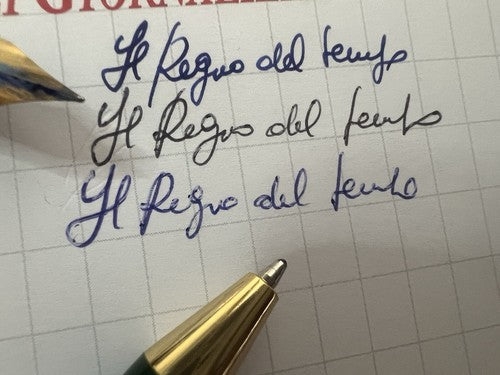 Il Regno del tempo
Il Regno del tempo
Il Regno del tempo